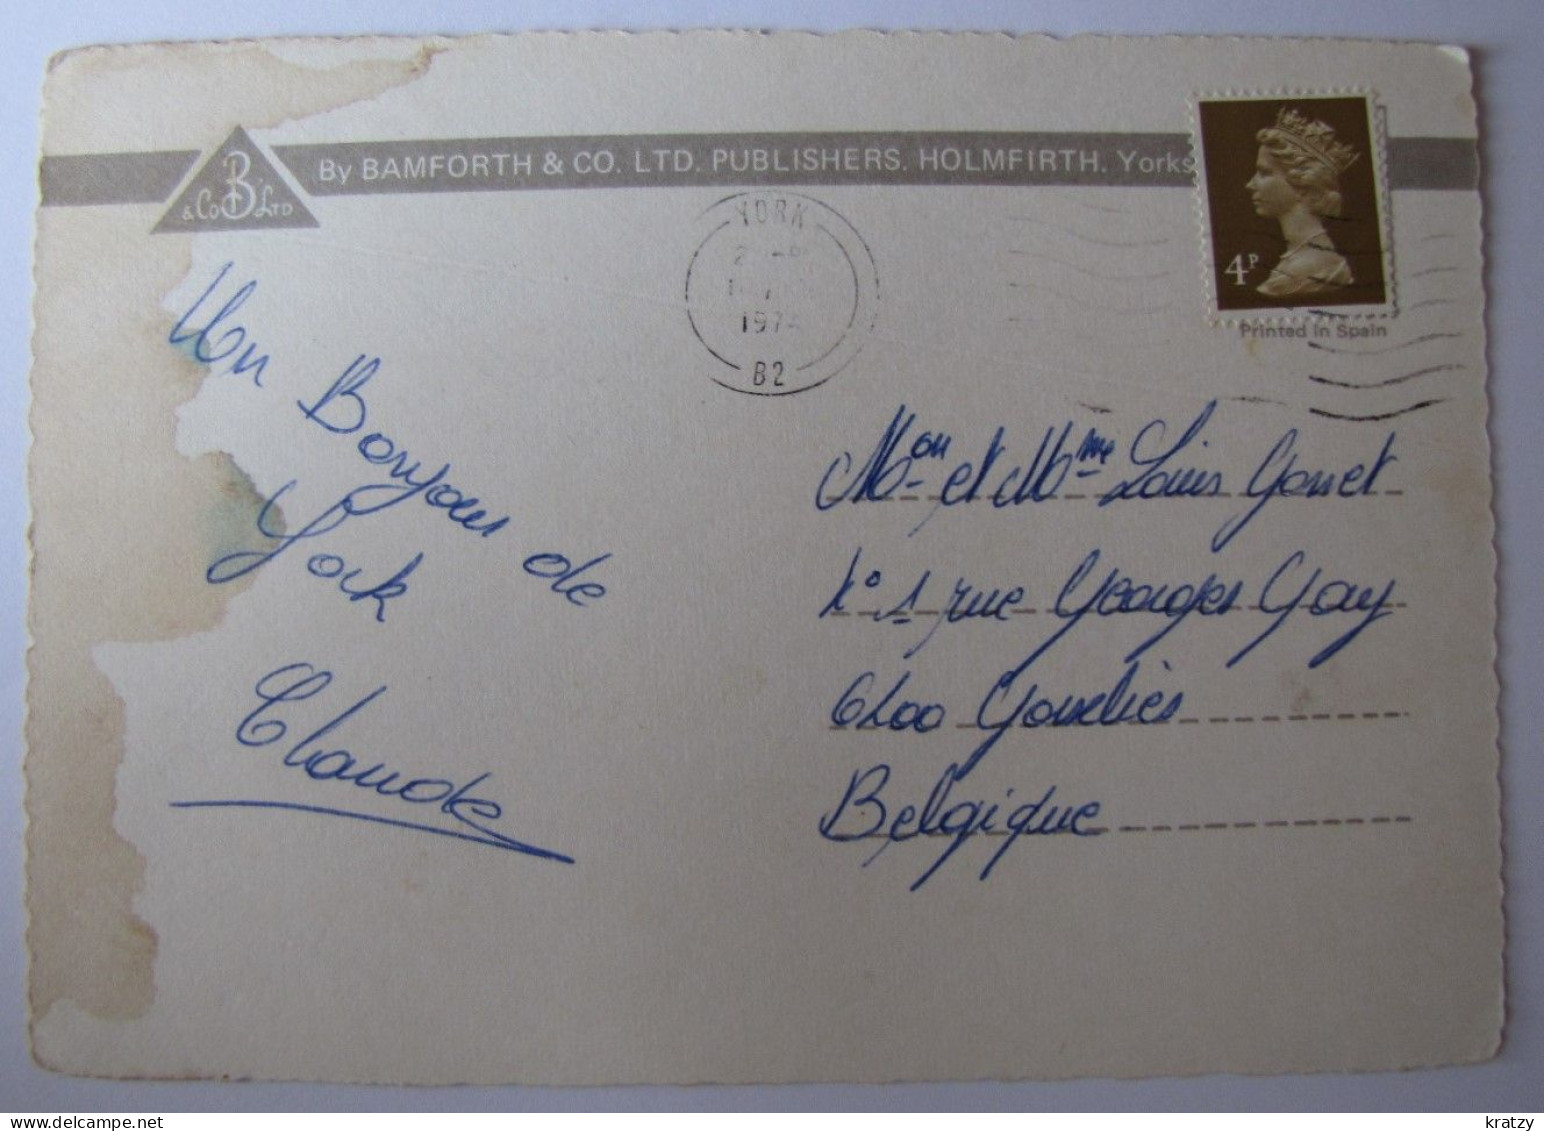 By BAMFORTH & CO. LTD. PUBLISHERS. HOLMFIRTH. Yorks
B
& Co LTD
YORK
1974
B2
4P
Printed in Spain
Un Bonjour de
York
Claude
Mon et Mme Louis Gonet
N° 1 rue Georges Gay
6200 Gosselies
Belgique
kratzy